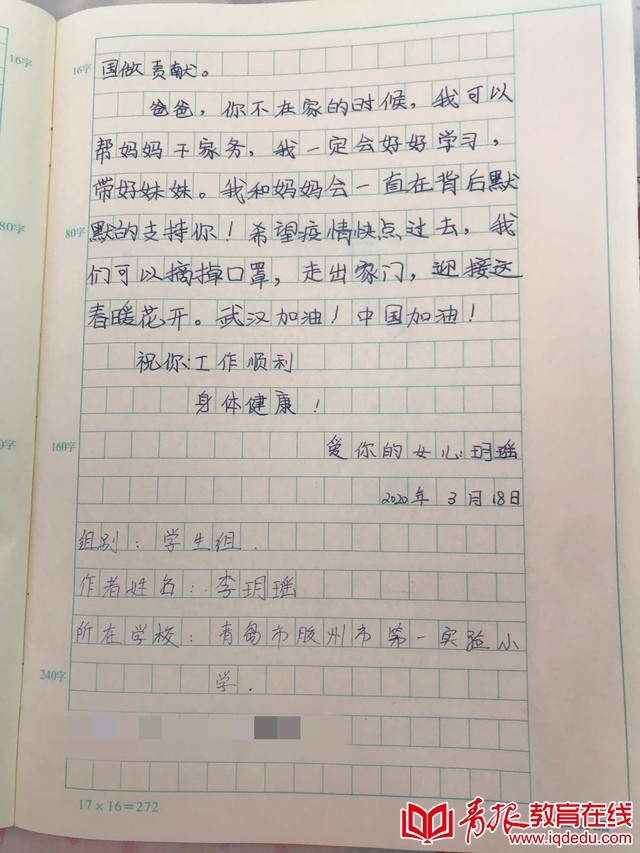 16字
16字
国做贡献。
爸爸，你不在家的时候，我可以
帮妈妈干家务，我一定会好好学习，
带好妹妹。我和妈妈会一直在背后默
80字
80字
默的支持你！希望疫情快点过去，我
们可以摘掉口罩，走出家门，迎接这
春暖花开。武汉加油！中国加油！
祝你:工作顺利
身体健康！
160字
爱你的女儿:玥瑶
2020年 3月18日
组别：学生组.
作者姓名：李玥瑶
所在学校：青岛市胶州市第一实验小
240字
学.
17×16=272
青报教育在线
www.iqdedu.com